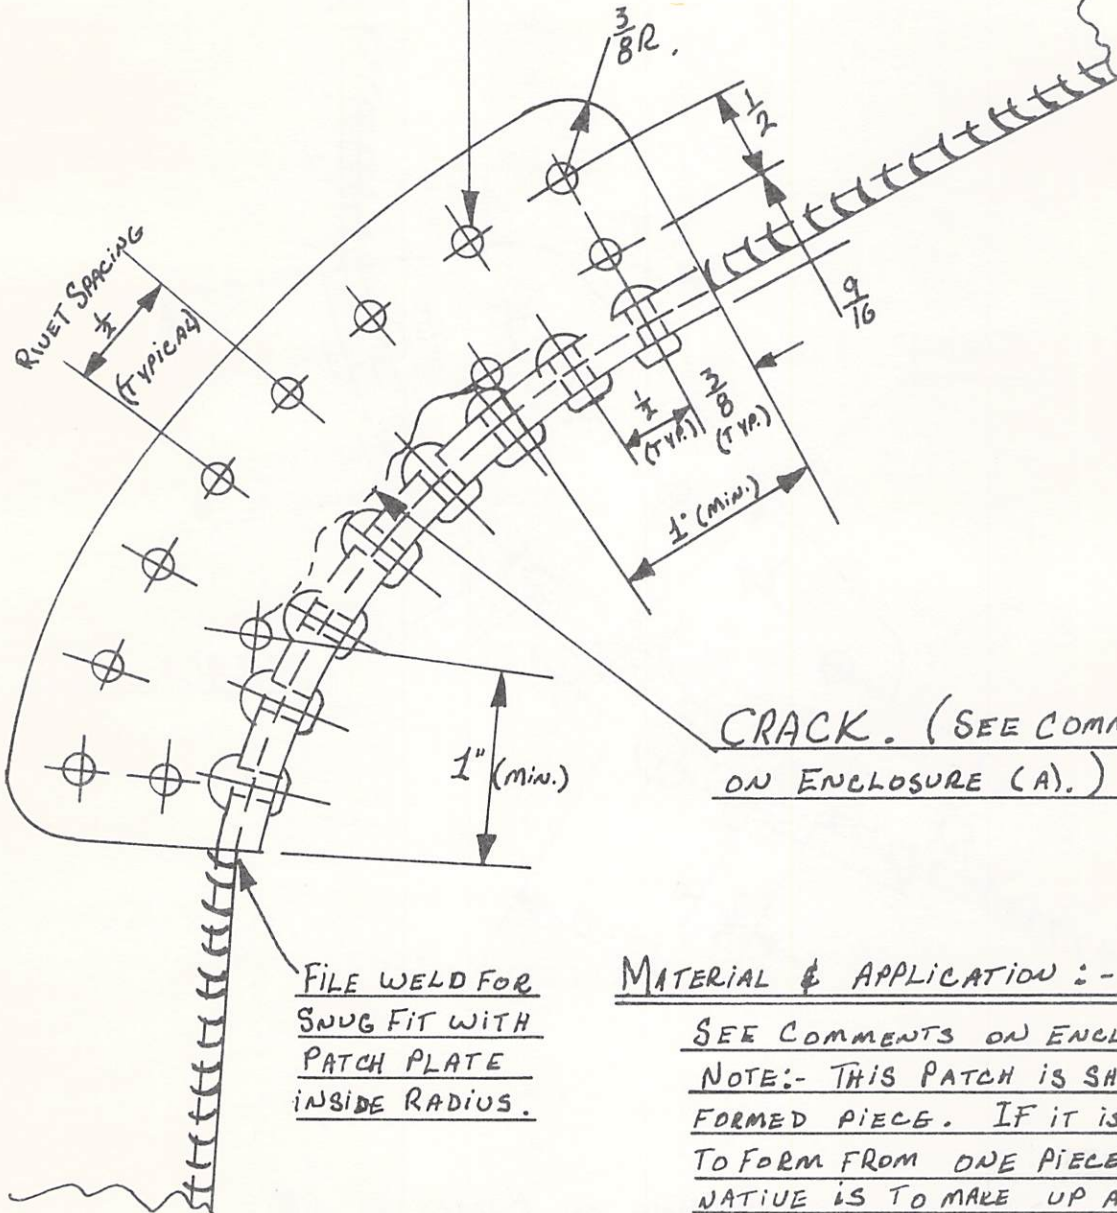 3/8 R.
1/2
9/16
RIVET SPACING
1/2
(TYPICAL)
1/2
(TYP.)
3/8
(TYP.)
1" (MIN.)
CRACK. (SEE COMM
ON ENCLOSURE (A).)
1" (MIN.)
FILE WELD FOR
SNUG FIT WITH
PATCH PLATE
INSIDE RADIUS.
MATERIAL & APPLICATION :-
SEE COMMENTS ON ENCL
NOTE:- THIS PATCH IS SH
FORMED PIECE. IF IT IS
TO FORM FROM ONE PIECE
NATIVE IS TO MAKE UP A